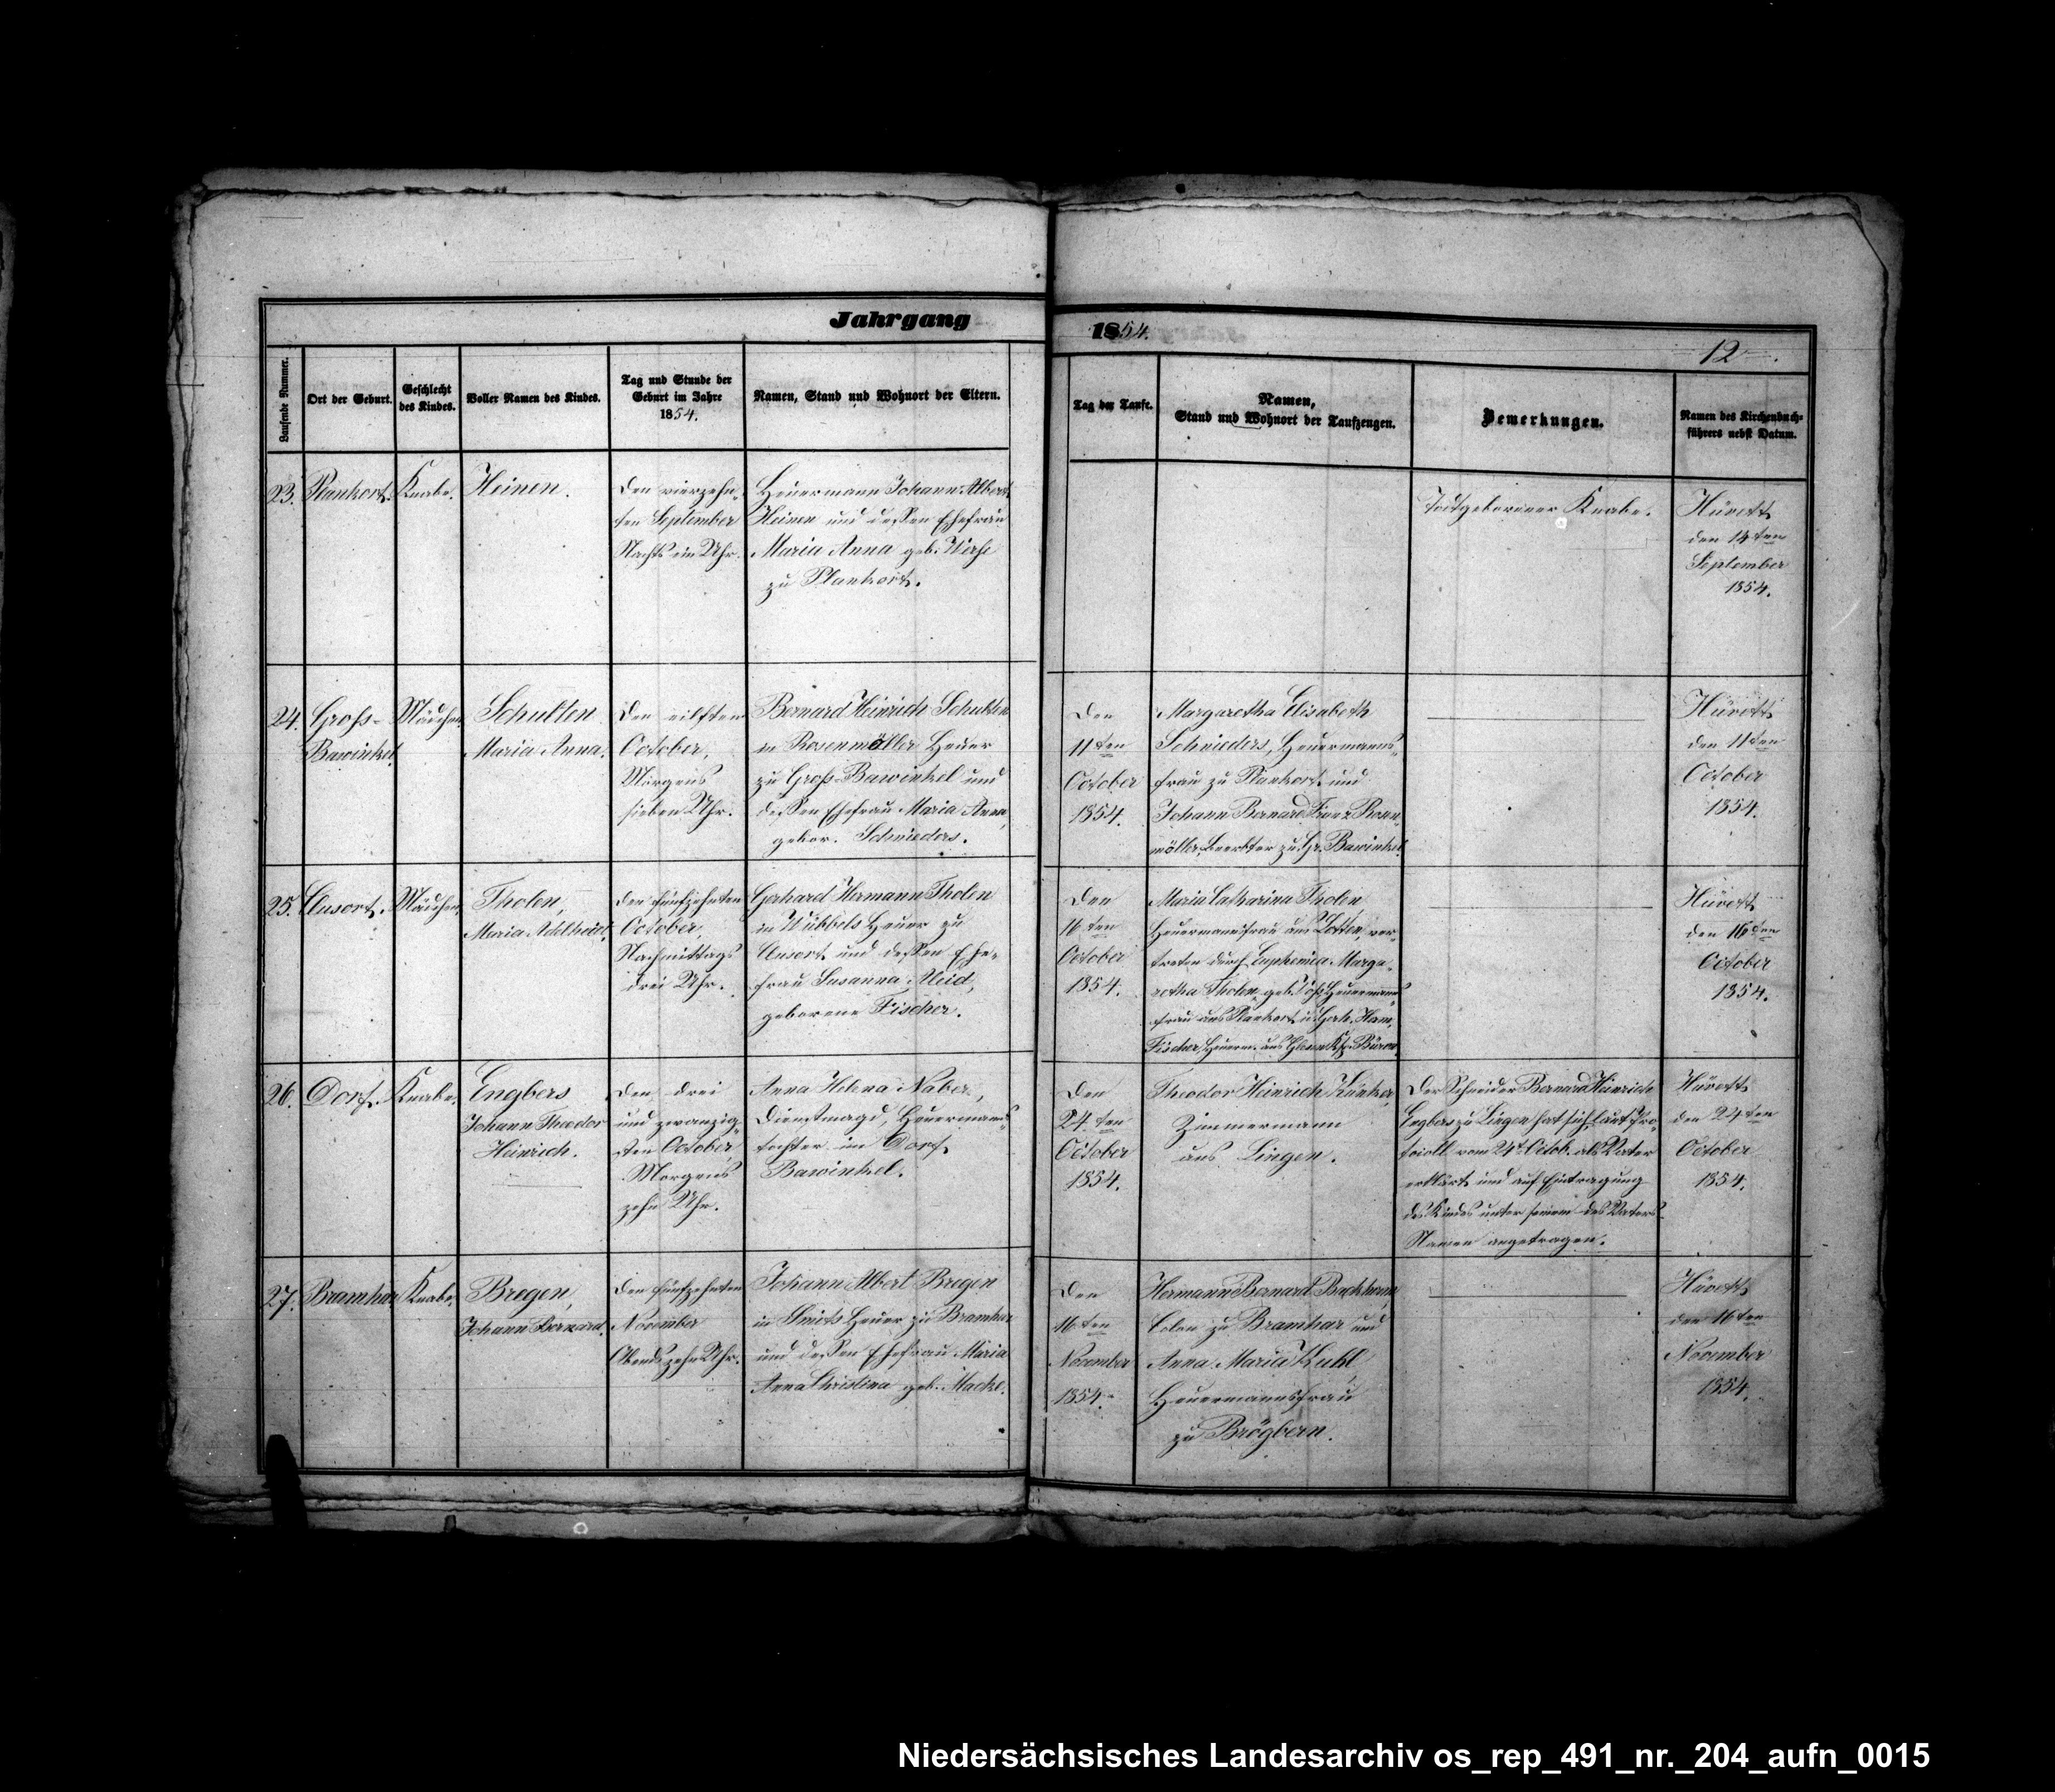 Jahrgang
1854.
12
Laufende Nummer.
Ort der Geburt.
Geschlecht
des Kindes.
Voller Namen des Kindes.
Tag und Stunde der
Geburt im Jahre
1854.
Namen, Stand und Wohnort der Eltern.
Tag der Taufe.
Namen,
Stand und Wohnort der Taufzeugen.
Bemerkungen.
Namen des Kirchenbuch-
führers nebst Datum.
23.
Plankort.
Knabe.
Heinen.
Den vierzehn-
ten September
Nachts ein Uhr.
Heuermann Johann Albert
Heinen und dessen Ehefrau
Maria Anna geb.
zu Plankort.
Todtgeborener Knabe.
Hüvett
den 14ten
September
1854.
24.
Groß-
Bawinkel.
Mädchen.
Schulten
Maria Anna.
Den eilften
October,
Morgens
sieben Uhr.
Bernard Heinrich Schulten
in Rosenmöller Heuer
zu Groß-Bawinkel und
dessen Ehefrau Maria Anna,
gebor. Schnieders.
Den
11ten
October
1854.
Margaretha Elisabeth
Schnieders, Heuermanns-
frau zu Plankort und
Johann Bernard Rosen-
möller, Beerbter zu Gr. Bawinkel.
Hüvett
den 11ten
October
1854.
25.
Clusort.
Mädchen.
Tholen,
Maria Adelheid.
Den fünfzehnten
October,
Nachmittags
drei Uhr.
Gerhard Hermann Tholen
in Wübbels Heuer zu
Clusort und dessen Ehe-
frau Susanna Aleid,
geborene Fischer.
Den
16ten
October
1854.
Maria Catharina Tholen
Heuermannsfrau aus Lotten, ver-
treten durch Euphemia Marga-
retha Tholen, geb. Heuermanns-
frau aus Plankort u. Gerh. Herm.
Fischer, Heuerm. aus
Hüvett
den 16ten
October
1854.
26.
Dorf.
Knabe.
Engbers
Johann Theodor
Heinrich.
Den drei
und zwanzig-
sten October,
Morgens
zehn Uhr.
Anna Helena Naber,
Dienstmagd, Heuermanns-
tochter im Dorf
Bawinkel.
Den
24.ten
October
1854.
Theodor Heinrich Künker,
Zimmermann
aus Lingen.
Der Schneider Bernard Heinrich
Engbers zu Lingen hat sich laut Pro-
tocoll vom 24t. Octob. als Vater
erklärt und auf Eintragung
des Kindes unter seinem des Vaters
Namen angetragen.
Hüvett
den 24ten
October
1854.
27.
Bramhar
Knabe.
Bregen,
Johann Bernard.
Den fünfzehnten
November
Abends zehn Uhr.
Johann Albert Bregen
in Smits Heuer zu Bramhar
und dessen Ehefrau Maria
Anna Christina geb. Macke.
Den
16ten
November
1854.
Hermann Bernard
Colon zu Bramhar und
Anna Maria Kuhl
Heuermannsfrau
zu Brögbern.
Hüvett
den 16ten
November
1854.
Niedersächsisches Landesarchiv os_rep_491_nr._204_aufn_0015